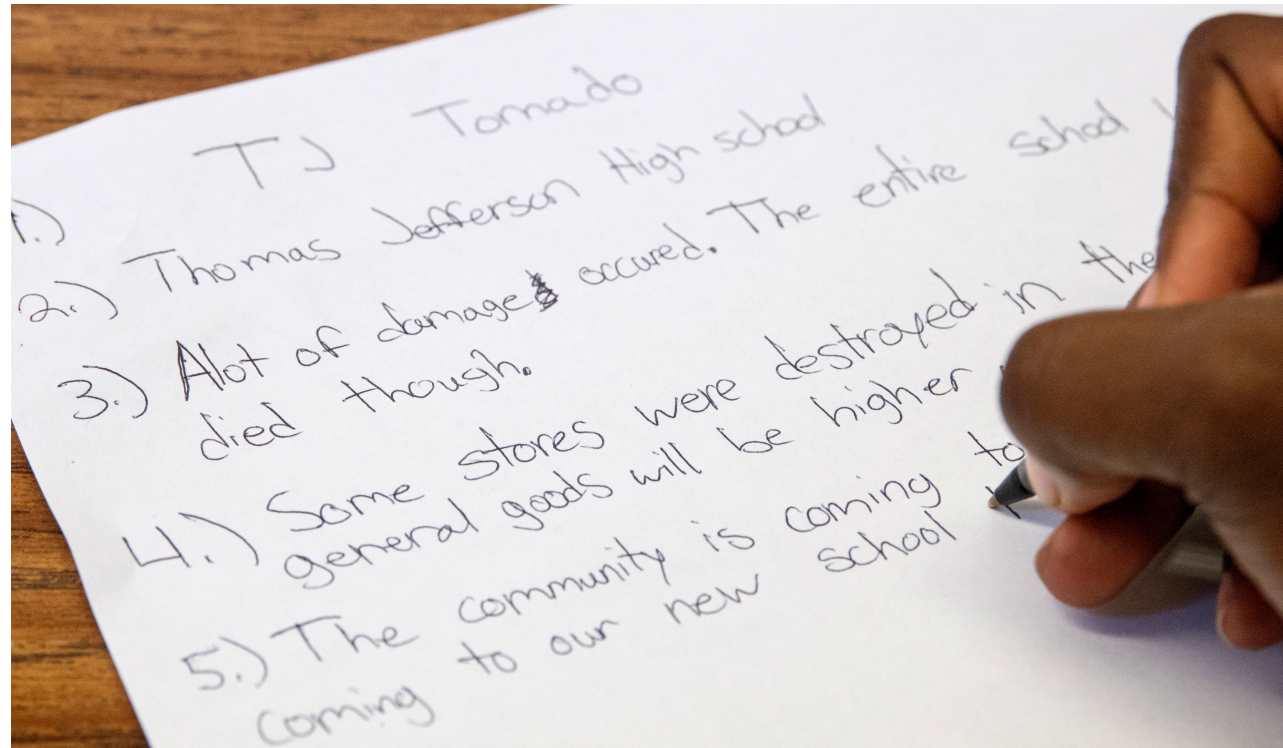 1.) TJ Tornado
2.) Thomas Jefferson High school
3.) Alot of damage occured. The entire school
died though.
4.) Some stores were destroyed in the
general goods will be higher
5.) The community is coming to
coming to our new school